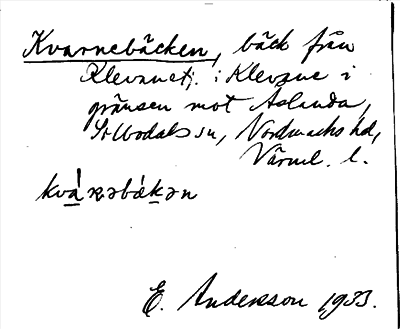 Kvarnebäcken, bäck från
Klevanetj. i Klevane i
gränsen mot Aslanda,
Sillbodals sn, Nordmarks hd,
Värml. l.
kvárnəbǽkən
E. Andersson 1933.